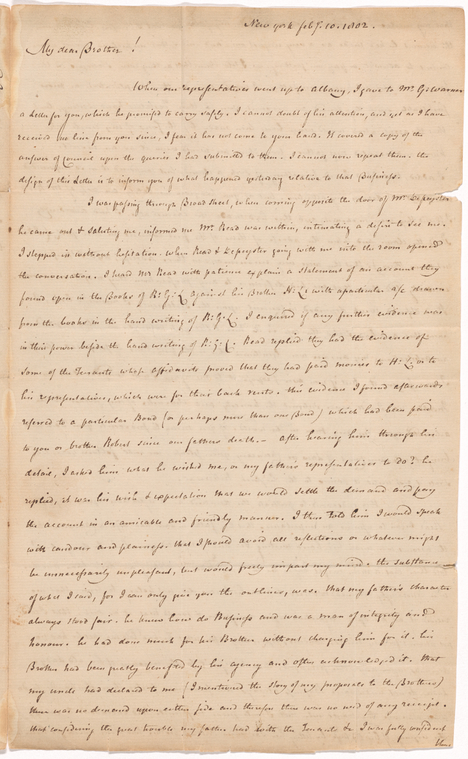 New York feby. 10. 1802.
My dear Brother!
When our representatives went up to Albany, I gave to Mr. G. Warner
a Letter for you, which he promised to carry safely. I cannot doubt of his attention, and yet as I have
received no line from you since, I fear it has not come to your hand. It covered a copy of the
answer of Council upon the queries I had submitted to them. I cannot now repeat them. the
design of this Letter is to inform you of what happened yesterday relative to that Business.
I was passing through Broad Street, when coming opposite the door of Mr. Depeyster
he came out & saluting me, informed me Mr. Read was within, intimating a desire to see me.
I stepped in without hesitation. when Read & Depeyster going with me into the room opened
the conversation. I heard Mr Read with patience explain a statement of an account they
found open in the Books of R. G. L. against his Brother H. L. with a particular a/c drawn
from the books in the hand writing of R. G. L. I enquired if any further evidence was
in their power beside the hand writing of R. G. L. Read replied they had the evidence of
some of the Tenants whose affidavits proved that they had paid monies to H. L. or to
his representatives, which was for their back rents. this evidence I found afterwards
referred to a particular Bond (or perhaps more than one Bond) which had been paid
to you or brother Robert since our fathers death. — after hearing him through his
detail, I asked him what he wished me, or my father's representatives to do? he
replied, it was his wish & expectation that we would settle the demand and pay
the account in an amicable and friendly manner. I then told him I would speak
with candour and plainness. that I should avoid all reflections or whatever might
be unnecessarily unpleasant, but would freely impart my mind. the substance
of what I said, for I can only give you the outlines, was. that my father's character
always stood fair. he knew how to do Business and was a man of integrity and
honour. he had done much for his Brother without charging him for it. his
Brother had been greatly benefited by his agency and often acknowledged it. that
my uncle had declared to me (I mentioned the story of my proposals to the Brothers)
there was no demand upon either side and therefore there was no need of any receipt.
that considering the great trouble my father had with the Tenants &c I was fully confident